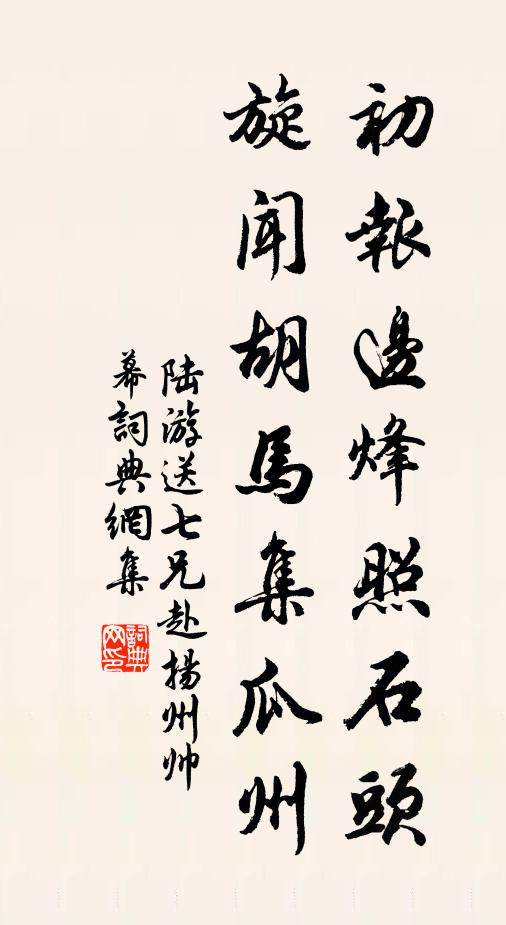 初報邊烽照石頭
旋聞胡馬集瓜州
陆游送七兄赴揚州帅
幕詞典網集
詞典网印